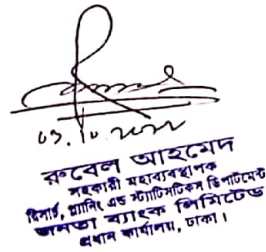 ০৩.১০.২০২২
রুবেল আহমেদ
সহকারী মহাব্যবস্থাপক
রিসার্চ, প্ল্যানিং এন্ড স্ট্যাটিসটিকস ডিপার্টমেন্ট
জনতা ব্যাংক লিমিটেড
প্রধান কার্যালয়, ঢাকা।